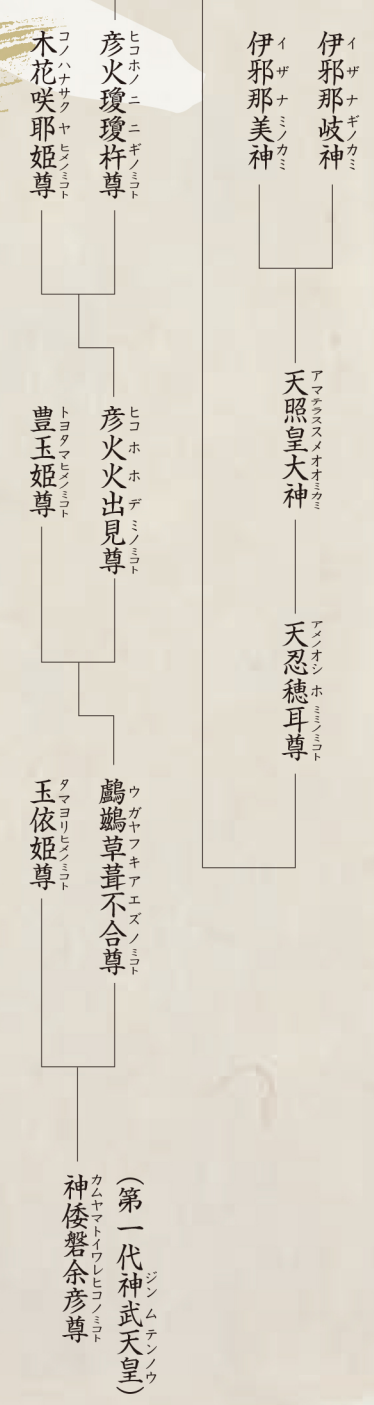 伊邪那岐神
イザナギノカミ
伊邪那美神
イザナミノカミ
天照皇大神
アマテラススメオオミカミ
天忍穂耳尊
アメノオシホミミノミコト
彦火瓊瓊杵尊
ヒコホノニニギノミコト
木花咲耶姫尊
コノハナサクヤヒメノミコト
彦火火出見尊
ヒコホホデミノミコト
豊玉姫尊
トヨタマヒメノミコト
鸕鷀草葺不合尊
ウガヤフキアエズノミコト
玉依姫尊
タマヨリヒメノミコト
（第一代神武天皇）
ジンムテンノウ
神倭磐余彦尊
カムヤマトイワレヒコノミコト